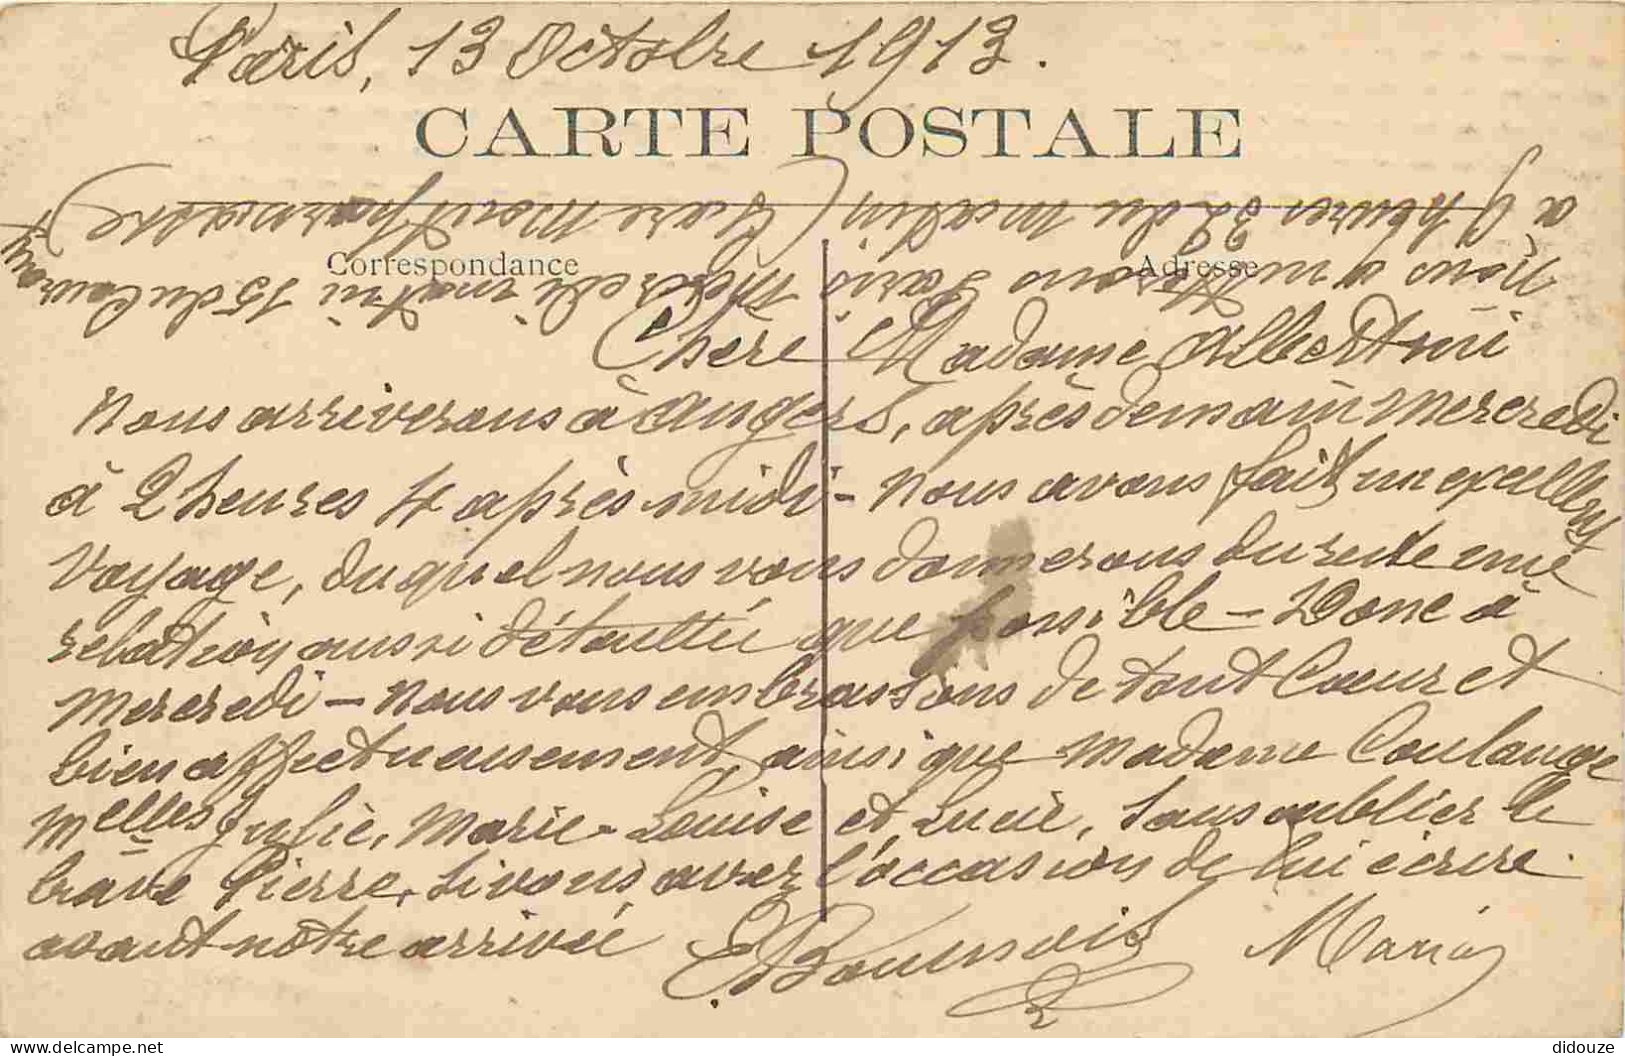 Paris, 13 Octobre 1913.
CARTE POSTALE
Correspondance
Adresse
Chère Madame Albertini
nous arriverons à Angers, après demain Mercredi
à 2 heures 4 après midi - nous avons fait un excellent
Voyage, duquel nous vous donnerons du reste une
relation aussi détaillée que possible - Donc à
Mercredi - nous vous embrassons de tout Cœur et
bien affectueusement, ainsi que Madame Coulange
Melles Julie, Marie-Louise et Lucie, sans oublier le
brave Pierre, si vous avez l'occasion de lui écrire
avant notre arrivée
Maria
Nous quitterons Paris Mercredi matin 15 du Courant
à 9 heures 32 du matin (Gare Montparnasse)
didouze
delcampe.net